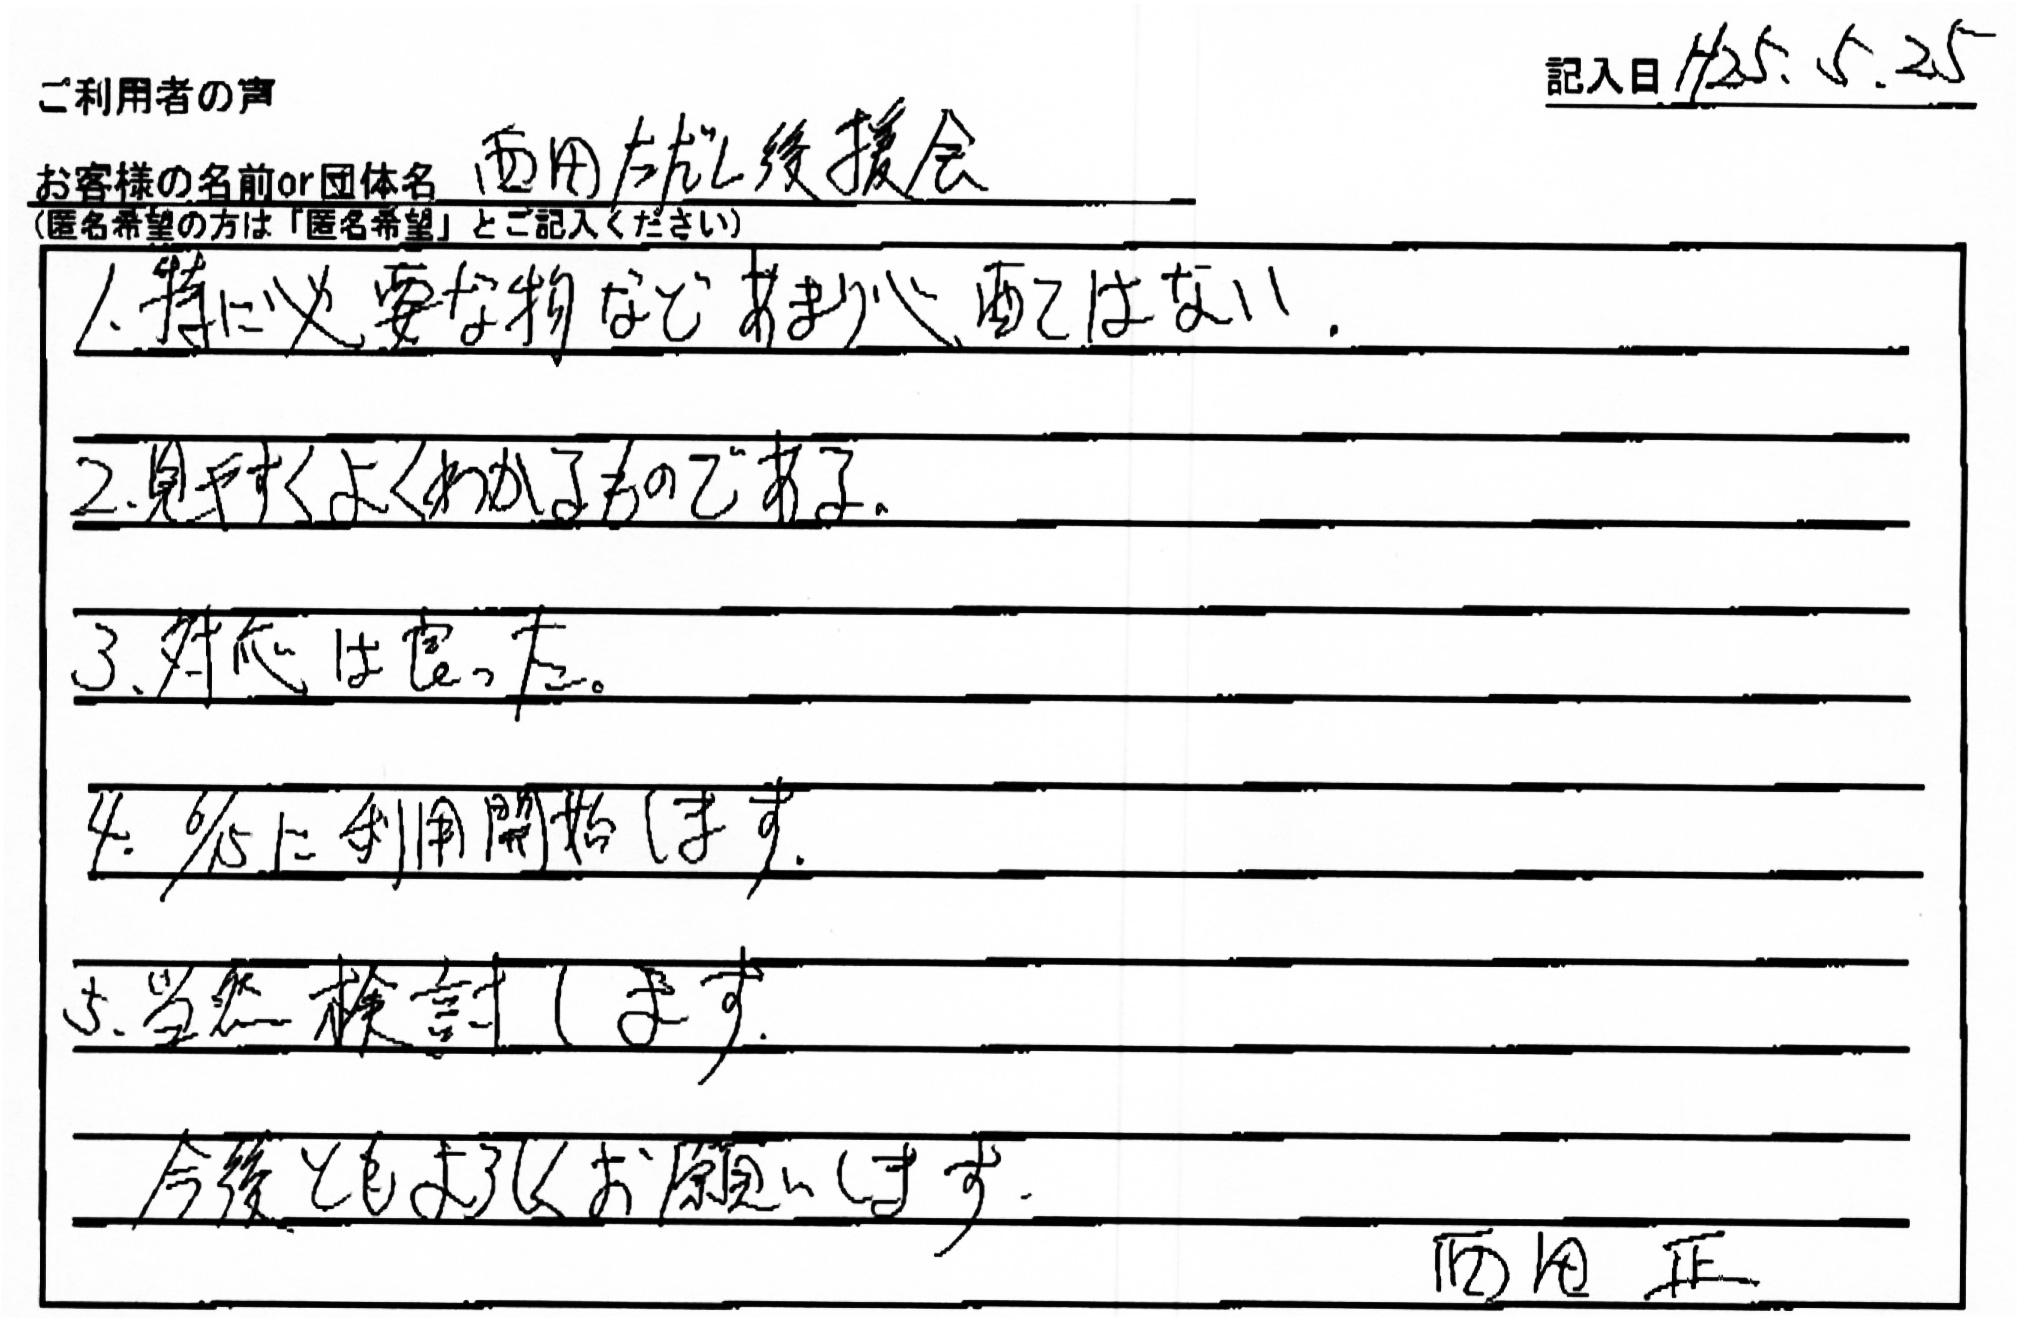 ご利用者の声
記入日 H25.5.25
お客様の名前or団体名 西田ただし後援会
(匿名希望の方は「匿名希望」とご記入ください)
1.特に必要な物などあまり心配てはない.
2.見やすくよくわかるものである。
3.対応は良った。
4.6/15に利用開始します.
5.当然検討します.
今後ともよろしくお願いします.
西田 正